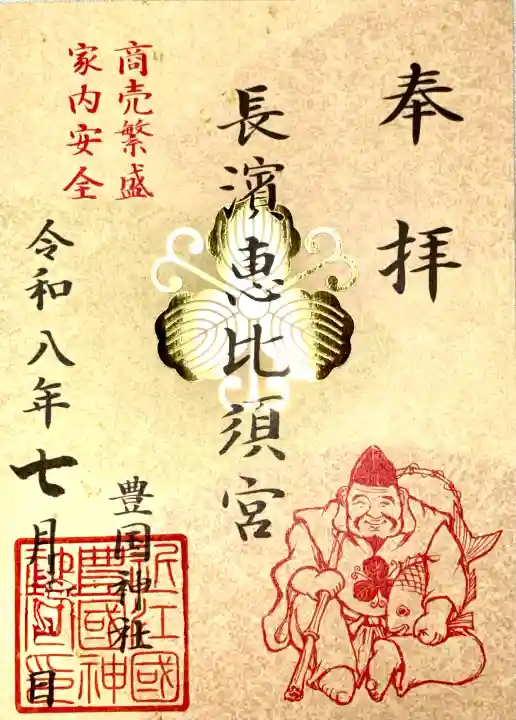 奉拝
長濱恵比須宮
商売繁盛
家内安全
令和八年七月 日
豊国神社
近江國
豊國神